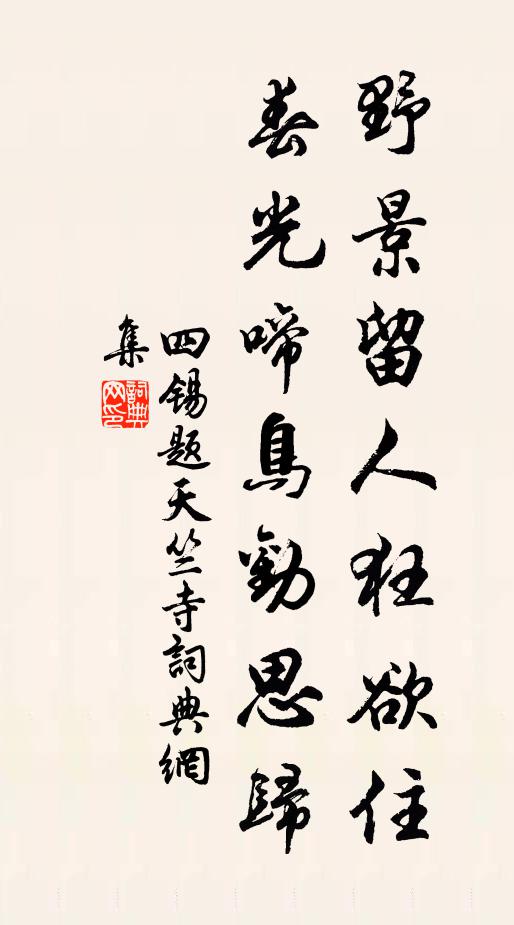 野景留人狂欲住
春光啼鳥勸思歸
四錫题天竺寺詞典網
集
詞典
网印